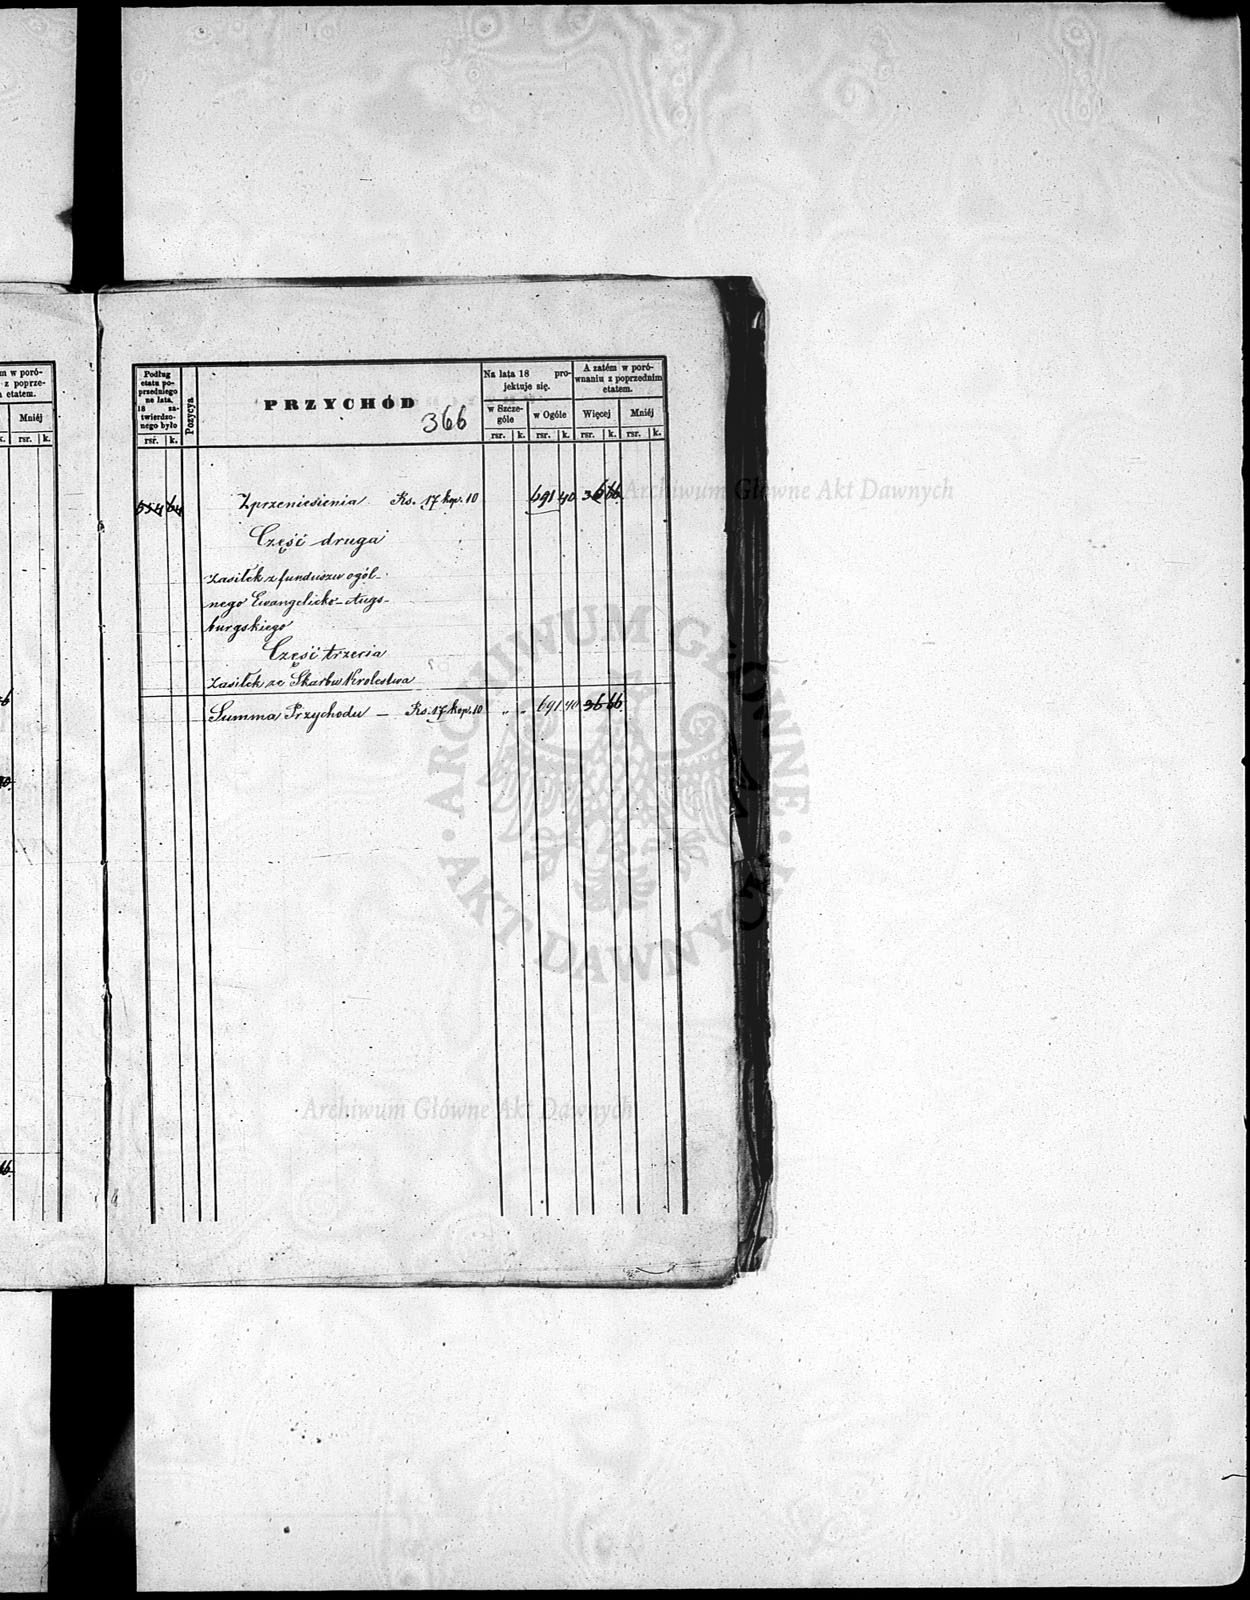 m w poró-
z poprze-
m etatem.
Mniéj
k. rsr. k.
Podług
etatu po-
przedniego
na lata.
18 za-
twierdzo-
nego było
rsr. k.
Pozycya
PRZYCHÓD
366
Na lata 18 pro-
jektuje się.
w Szcze-
góle
w Ogóle
rsr. k. rsr. k.
A zatém w poró-
wnaniu z poprzednim
etatem.
Więcej Mniéj
rsr. k. rsr. k.
554 64 Zprzeniesienia Rs. 17 kop. 10 691 40 36 66
Część druga
Zasiłek z funduszu ogól-
nego Ewangelicko-Augs-
burgskiego
Część trzecia
Zasiłek ze Skarbu Królestwa
Summa Przychodu — Rs. 17 kop. 10 " " 691 40 36 66
Archiwum Główne Akt Dawnych
ARCHIWUM GŁÓWNE
AKT DAWNYCH
Archiwum Główne Akt Dawnych